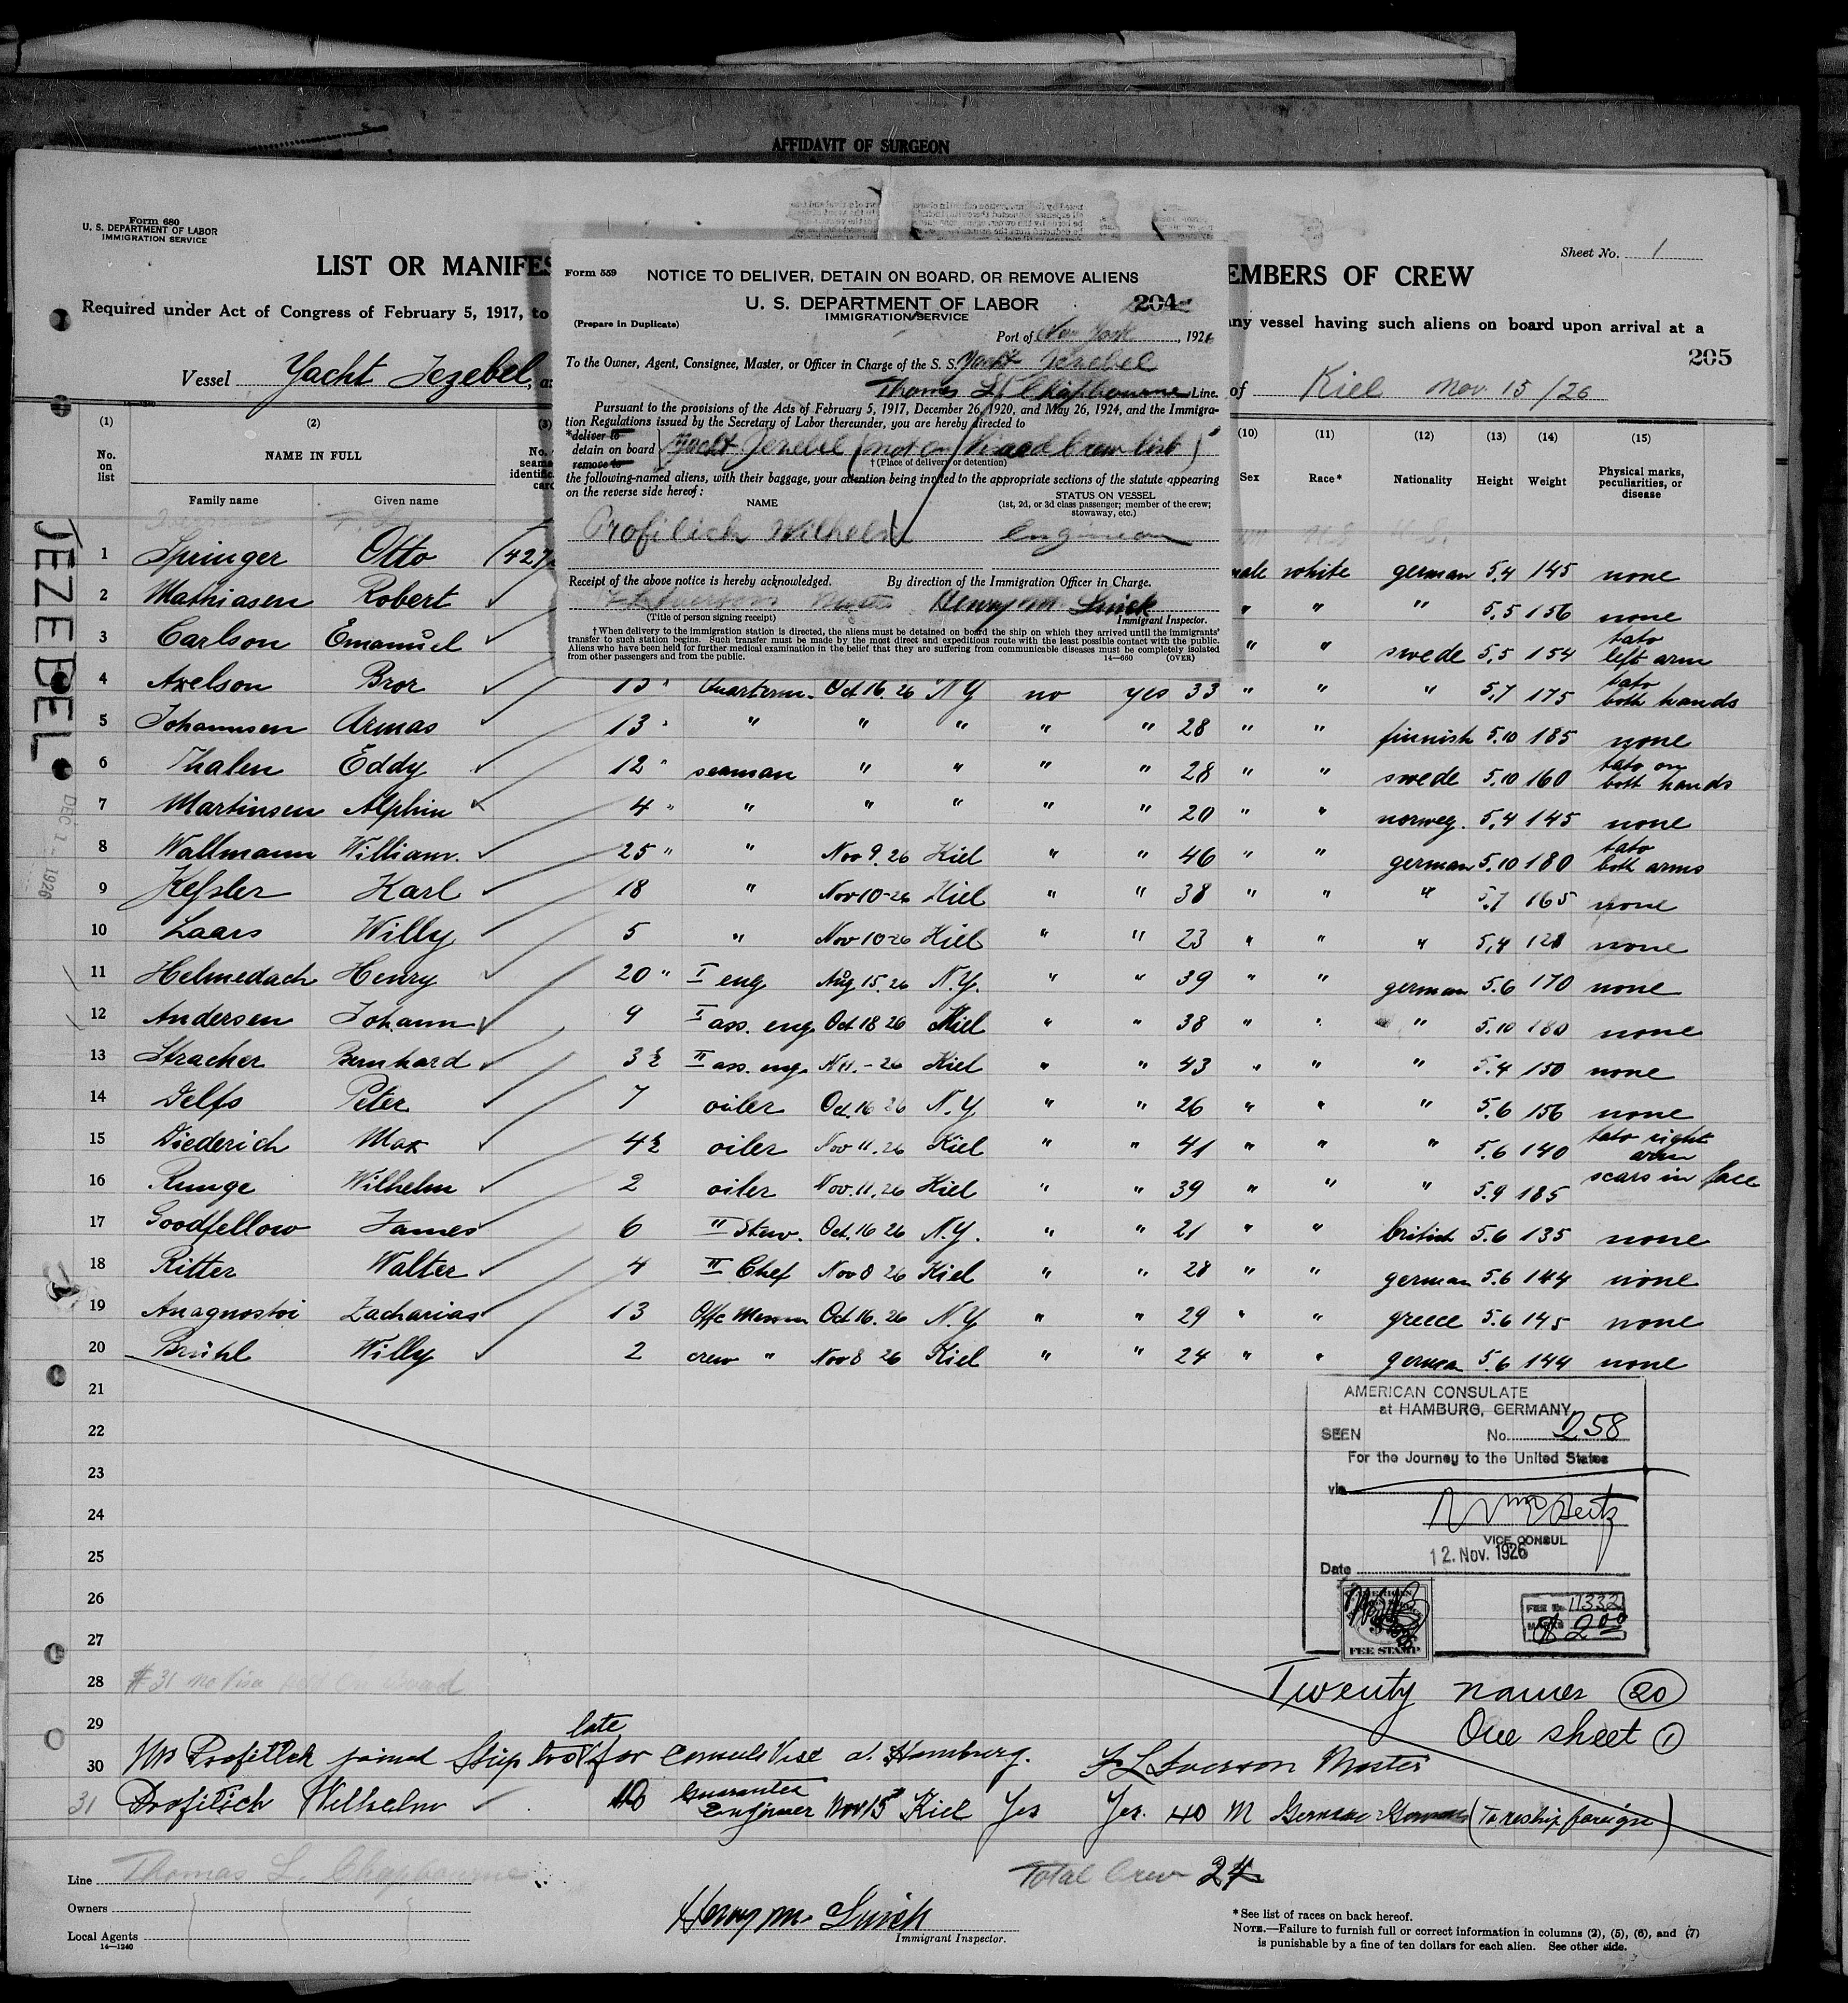 AFFIDAVIT OF SURGEON
Form 680
U. S. DEPARTMENT OF LABOR
IMMIGRATION SERVICE
Sheet No. 1
LIST OR MANIFES
EMBERS OF CREW
Required under Act of Congress of February 5, 1917, to
any vessel having such aliens on board upon arrival at a
205
Vessel Yacht Jezebel,
of Kiel Nov 15/26
Form 559
NOTICE TO DELIVER, DETAIN ON BOARD, OR REMOVE ALIENS
U. S. DEPARTMENT OF LABOR 204
IMMIGRATION SERVICE
(Prepare in Duplicate)
Port of New York, 1926
To the Owner, Agent, Consignee, Master, or Officer in Charge of the S. S. Yacht Jezebel
Thomas L. Chapbourne Line.
Pursuant to the provisions of the Acts of February 5, 1917, December 26, 1920, and May 26, 1924, and the Immigra-
tion Regulations issued by the Secretary of Labor thereunder, you are hereby directed to
*deliver to
detain on board Yacht Jezebel (not on Visaed Crew list)
remove to
†(Place of delivery or detention)
the following-named aliens, with their baggage, your attention being invited to the appropriate sections of the statute appearing
on the reverse side hereof:
NAME STATUS ON VESSEL
(1st, 2d, or 3d class passenger; member of the crew; stowaway, etc.)
Profilich Wilhelm
Receipt of the above notice is hereby acknowledged. By direction of the Immigration Officer in Charge.
Henry M. Smick
(Title of person signing receipt) Immigrant Inspector.
†When delivery to the immigration station is directed, the aliens must be detained on board the ship on which they arrived until the immigrants'
transfer to such station begins. Such transfer must be made by the most direct and expeditious route with the least possible contact with the public.
Aliens who have been held for further medical examination in the belief that they are suffering from communicable diseases must be completely isolated
from other passengers and from the public. 14—660 (OVER)
(1) (2) (3) (10) (11) (12) (13) (14) (15)
No. on list NAME IN FULL Sex Race* Nationality Height Weight Physical marks, peculiarities, or disease
Family name Given name
JEZEBEL
DEC 1 - 1926
1 Springer Otto male white german 5,4 145 none
2 Mathiasen Robert " " " 5,5 156 none
3 Carlson Emanuel " " swede 5,5 154 tato left arm
4 Axelson Bror 15 " Quarterm. Oct 16. 26 N Y no yes 33 " " " 5,7 175 tato both hands
5 Johannsen Armas 13 " " " " " " 28 " " finnish 5.10 185 none
6 Thalen Eddy 12 " seaman " " " " 28 " " swede 5.10 160 tato on both hands
7 Martinsen Alphin 4 " " " " " " 20 " " norweg. 5,4 145 none
8 Wallmann William. 25 " " Nov 9. 26 Kiel " " 46 " " german 5.10 180 tato both arms
9 Keßler Karl 18 " Nov 10-26 Kiel " " 38 " " " 5.7 165 none
10 Laars Willy 5 " Nov 10-26 Kiel " " 23 " " " 5,4 128 none
11 Helmedach Henry 20 " I eng Aug 15. 26 N.Y. " " 39 " " german 5.6 170 none
12 Andersen Johann 9 I ass. eng Oct 18 26 Kiel " " 38 " " " 5.10 180 none
13 Stracher Bernhard 3½ II ass. eng. N 11. - 26 Kiel " " 43 " " " 5.4 150 none
14 Delfs Peter 7 oiler Oct. 16 26 N.Y " " 26 " " " 5.6 156 none
15 Diederich Max 4½ oiler Nov 11. 26 Kiel " " 41 " " " 5.6 140 tato right arm
16 Runge Wilhelm 2 oiler Nov. 11. 26 Kiel " " 39 " " " 5.9 185 scars in face
17 Goodfellow James 6 II Stew. Oct. 16 26 N.Y. " " 21 " " british 5.6 135 none
18 Ritter Walter 4 II Chef Nov 8 26 Kiel " " 28 " " german 5.6 144 none
19 Anagnostoi Zacharias 13 Offc Messm Oct 16. 26 N.Y " " 29 " " greece 5.6 145 none
20 Brühl Willy 2 crew " Nov 8 26 Kiel " " 24 " " german 5.6 144 none
21
22
23
24
25
26
27
28 #31 no Visa on Board
29
30 Mr Profitlich joined Ship too late for Consuls Visé at Hamburg. F L Iverson Master
31 Profitlich Wilhelm 10 Guarantee Engineer Nov 15 Kiel Yes Yes. 40 M German German (To reship foreign)
AMERICAN CONSULATE
at HAMBURG, GERMANY
SEEN No. 258
For the Journey to the United States
via
VICE CONSUL
Date 12. Nov. 1926
AMERICAN
FEE STAMP
FEE No. 11332
$ 2.00
Twenty names (20)
One sheet (1)
Line Thomas L. Chapbourne
Total Crew 24
Owners
Henry M. Smick
Local Agents
Immigrant Inspector.
14—1240
*See list of races on back hereof.
NOTE.—Failure to furnish full or correct information in columns (2), (5), (6), and (7)
is punishable by a fine of ten dollars for each alien. See other side.